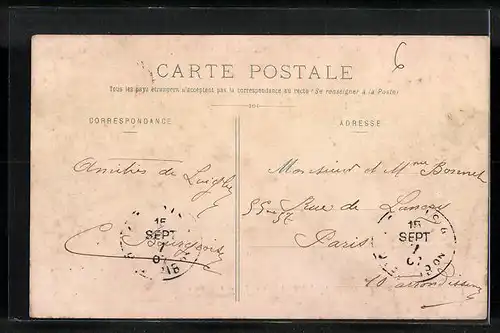 6
CARTE POSTALE
Tous les pays étrangers n'acceptent pas la correspondance au recto (Se renseigner à la Poste)
CORRESPONDANCE
ADRESSE
Amitiés de
C. Bourgeois
15
SEPT
Monsieur et Mme Bonnet
55-57 Rue de Lancry
Paris
15
SEPT
10